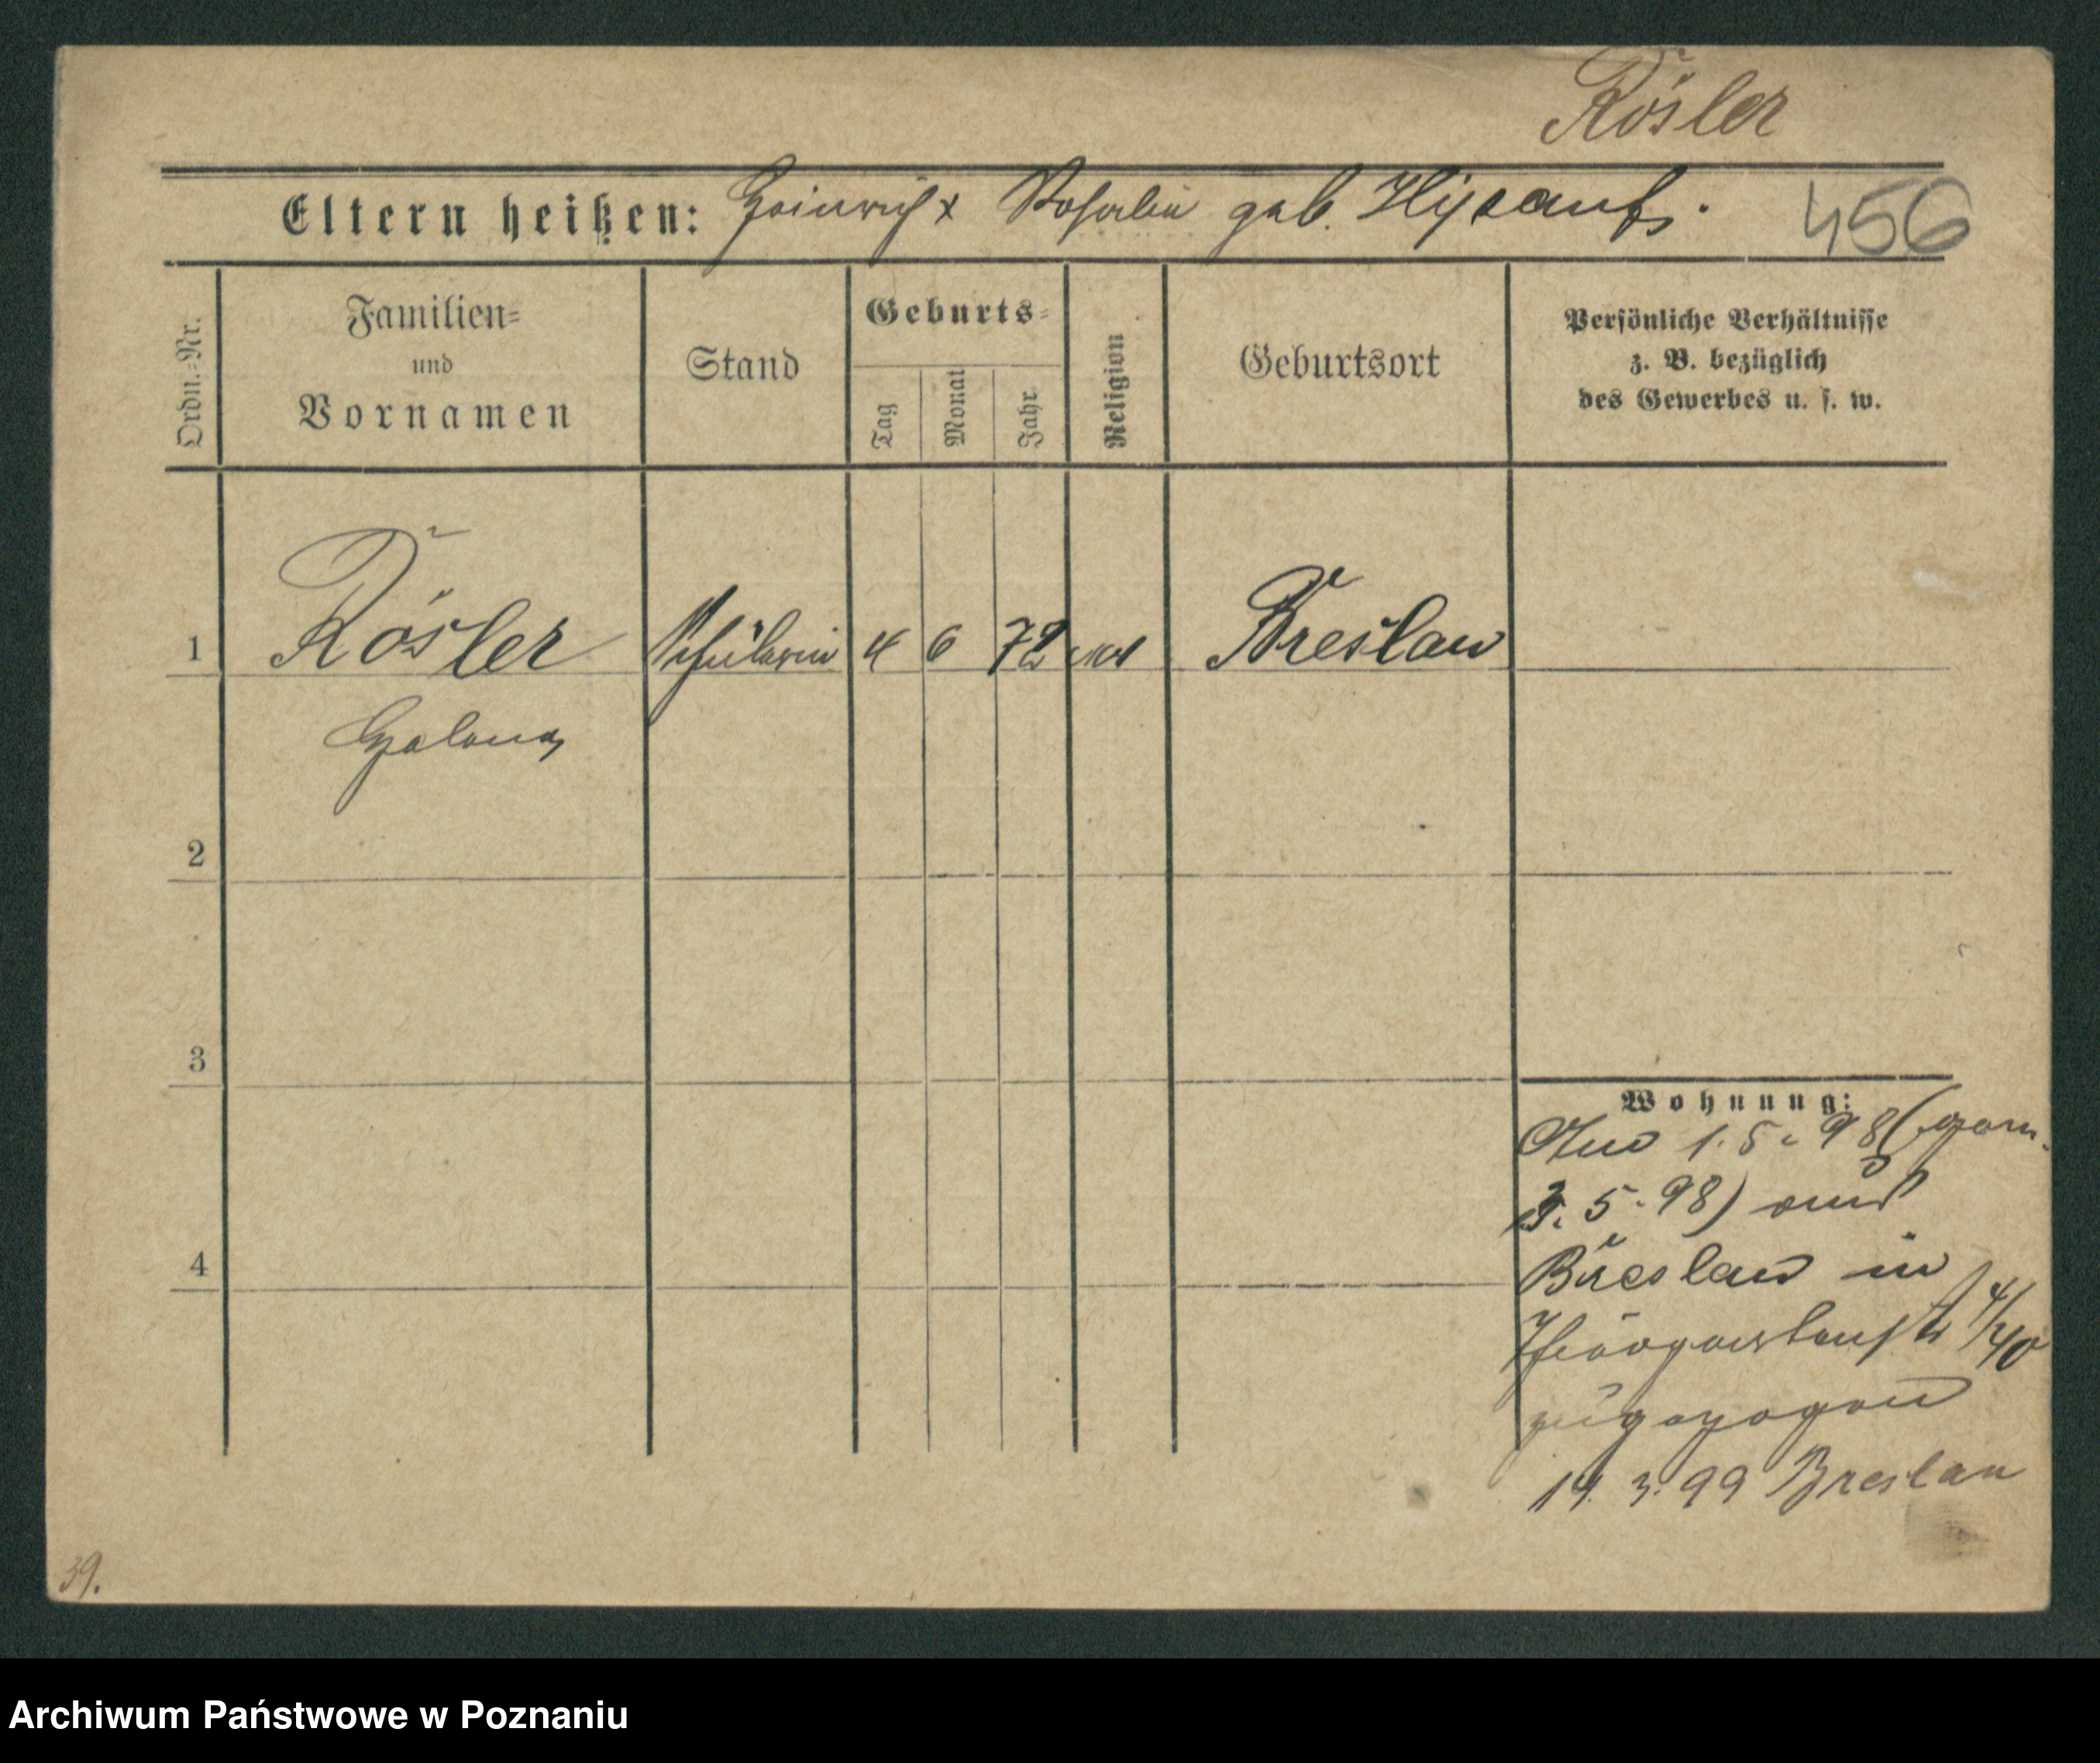 Rösler
Eltern heißen: Heinrich x Rosalie geb.
456
Ordn.-Nr.
Familien= und Vornamen
Stand
Geburts=
Tag
Monat
Jahr
Religion
Geburtsort
Persönliche Verhältnisse
z. B. bezüglich
des Gewerbes u. s. w.
1 Rösler Schülerin 4 6 72 Breslau
Helena
2
3
4
Wohnung:
1.5.98 (gem.
3.5.98) aus
Breslau in
4/40
zugezogen
14.3.99 Breslau
39.
Archiwum Państwowe w Poznaniu